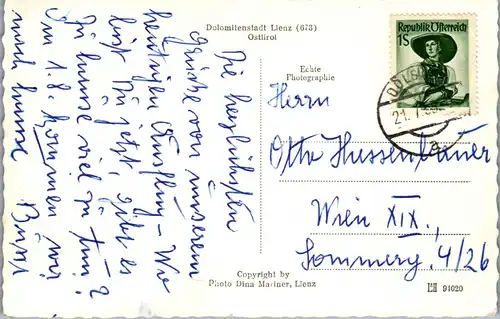 Dolomitenstadt Lienz (673)
Osttirol
Echte
Photographie
Republik Österreich
1S
21.
Die herzlichsten
Grüße von unserem
heutigen Ausflug – Wo
bist Du jetzt, gibt es
zu hause viel zu tun?
Am 1.8. kommen wir
nach hause
Herrn
Otto Hussenbauer
Wien XIX,
Sommerg. 4/26
Copyright by
Photo Dina Mariner, Lienz
94020